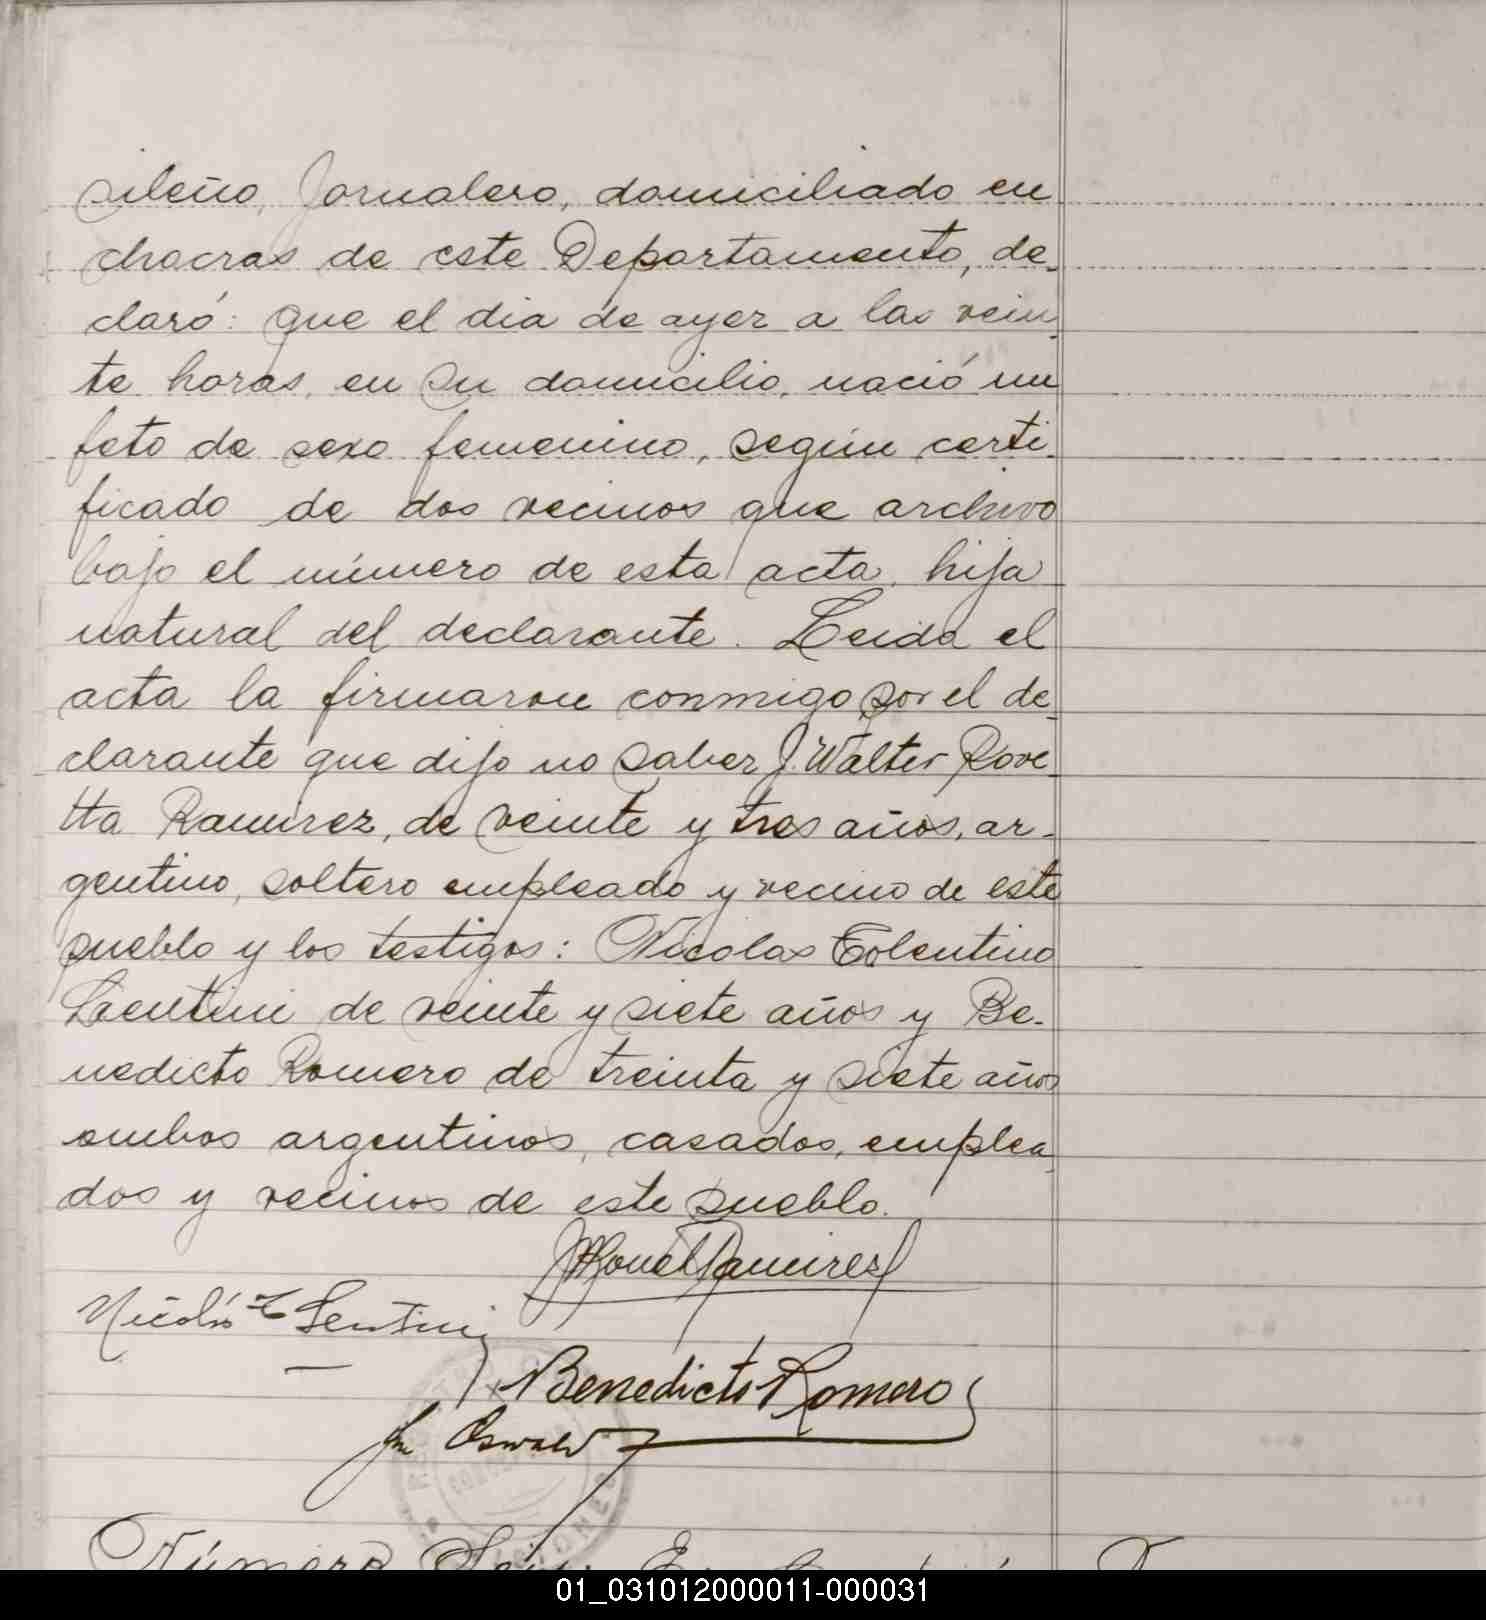 sileño, Jornalero, domiciliado en
chacras de este Departamento, de-
claró: que el dia de ayer a las vein-
te horas, en su domicilio, nació un
feto de sexo femenino, según certi-
ficado de dos vecinos que archivo
bajo el número de esta acta, hija
natural del declarante. Leida el
acta la firmaron conmigo por el de-
clarante que dijo no saber J. Walter Rove-
tta Ramirez, de veinte y tres años, ar-
gentino, soltero empleado y vecino de este
pueblo y los testigos: Nicolas Tolentino
Lientini de veinte y siete años y Be-
nedicto Romero de treinta y siete años
ambos argentinos, casados, emplea-
dos y vecinos de este pueblo.
Ramirez
Nicolás T Lentini
Benedicto Romero
Oswald
Número
01_031012000011-000031